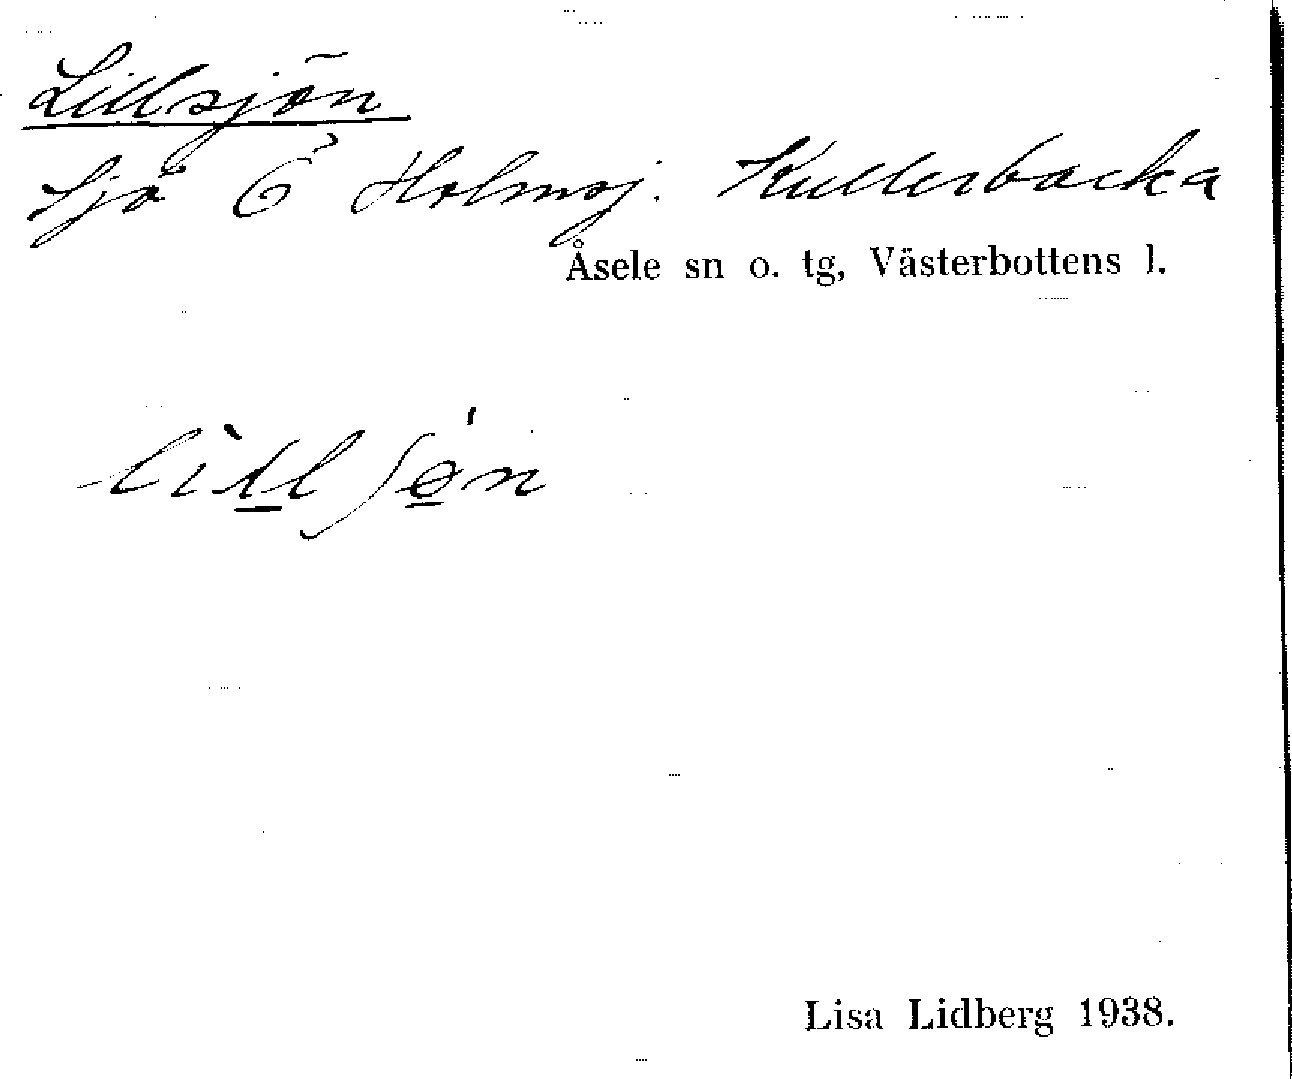 Lillsjön
Sjö Ö Holmsj. Kullerbacka
Åsele sn o. tg, Västerbottens l.
Lisa Lidberg 1938.